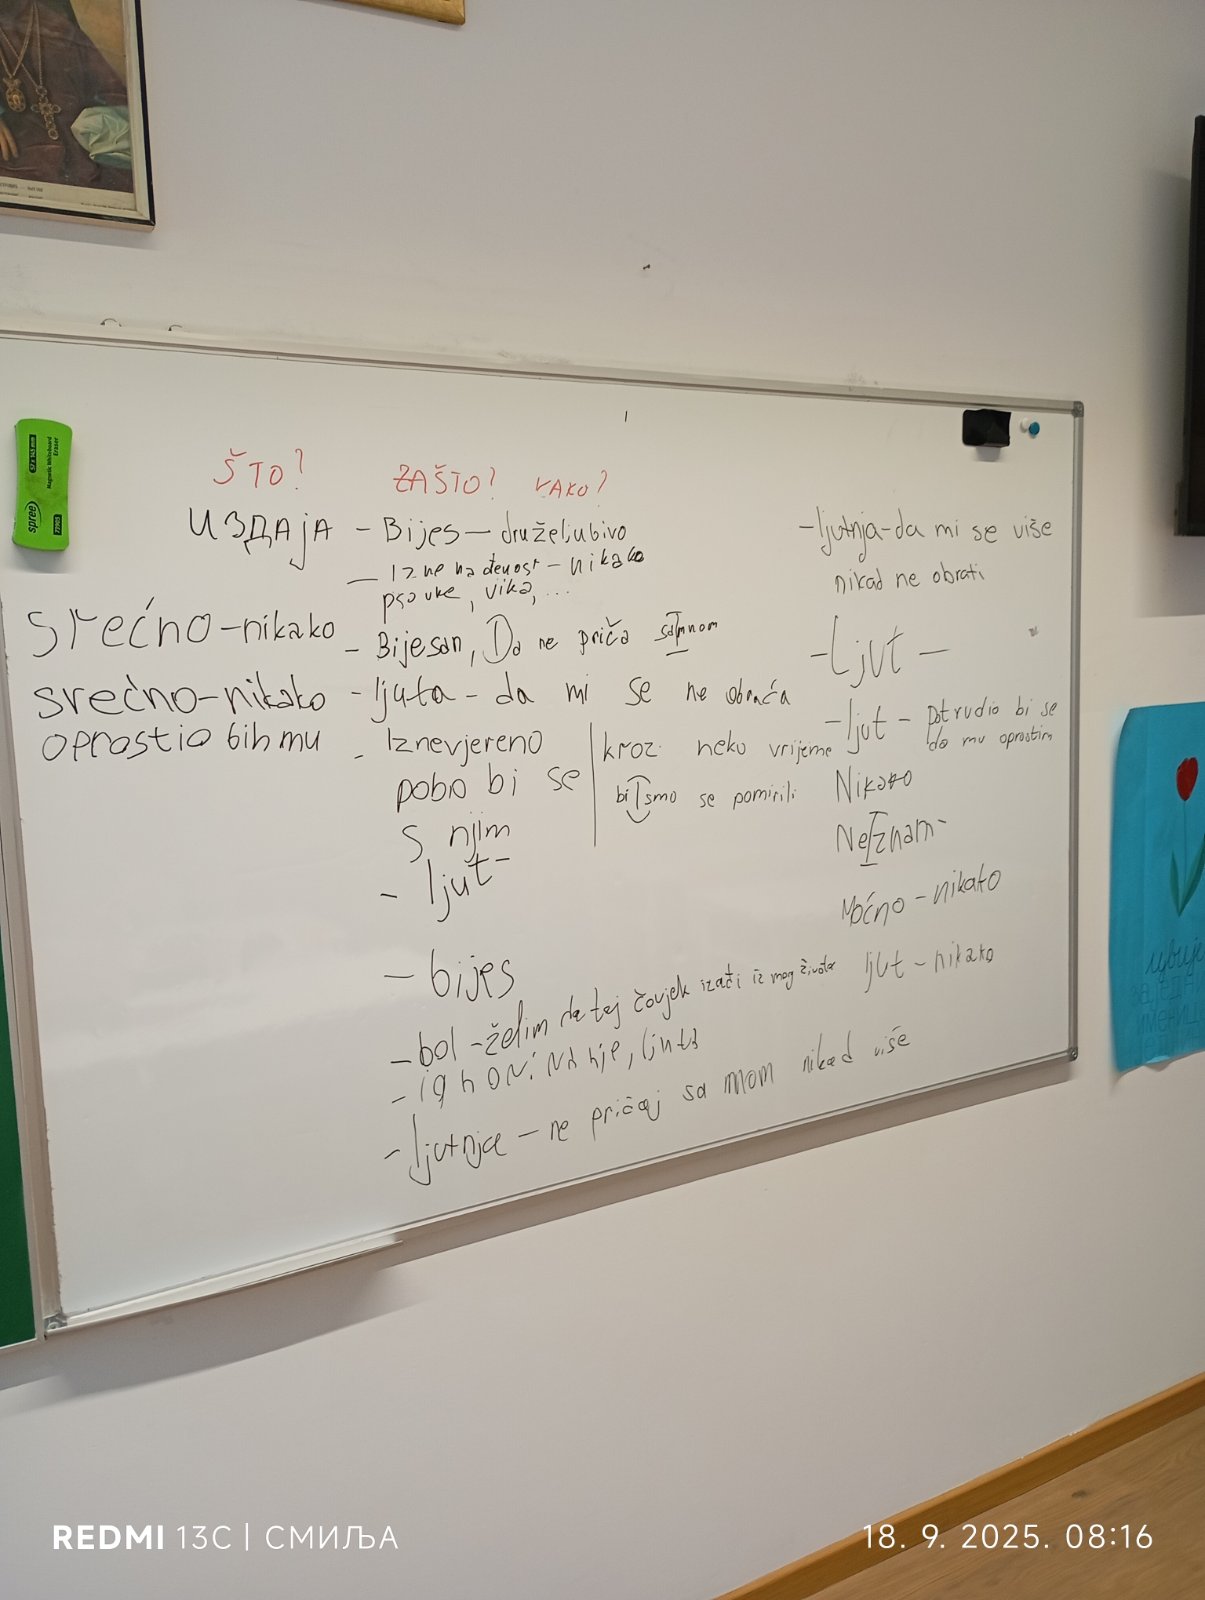 ŠTO? ZAŠTO? KAKO?
ИЗДАЈА - Bijes - druželjubivo
- Iznenađenost - nikako
psovke, vika, ...
srećno - nikako
- Bijesan, Da ne priča samnom
srećno - nikako
- ljuta - da mi se ne obraća
oprostio bih mu
- Iznevjereno
pobo bi se
s njim
kroz neko vrijeme
bi smo se pomirili
- ljut -
- bijes
- bol - želim da taj čovjek izađi iz mog života
- ignorisanje, ljuta
- ljutnja - ne pričaj sa mom nikad više
- ljutnja - da mi se više
nikad ne obrati
- Ljut -
- ljut - Potrudio bi se
da mu oprostim
Nikako
Ne znam -
Moćno - nikako
ljut - nikako
spree
Magnetic Whiteboard
Eraser
57 x 145 mm
REDMI 13C | СМИЉА
18. 9. 2025. 08:16